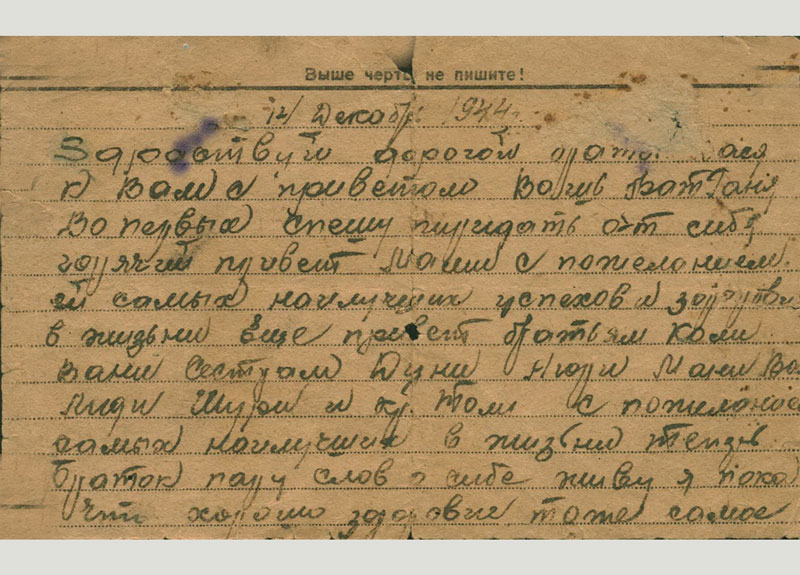 Выше черты не пишите!
14 Декабр. 1944 г.
Здраствуйте дорогой брат Вася
к Вам с приветом Ваш брат Ганя
Во первых спешу пиридать от сибя
горячий привет Маши с пожеланием
ей самых наилучших успехов и здравья
в жизьни еще привет братьям Коли
Вани Сестрам Дуни Нюри Мани
Лиди Шури и кр. Толи с пожеланием
самых наилучших в жизьни теперь
браток пару слов о сибе живу я пока
что хорошо здоровие тоже самое